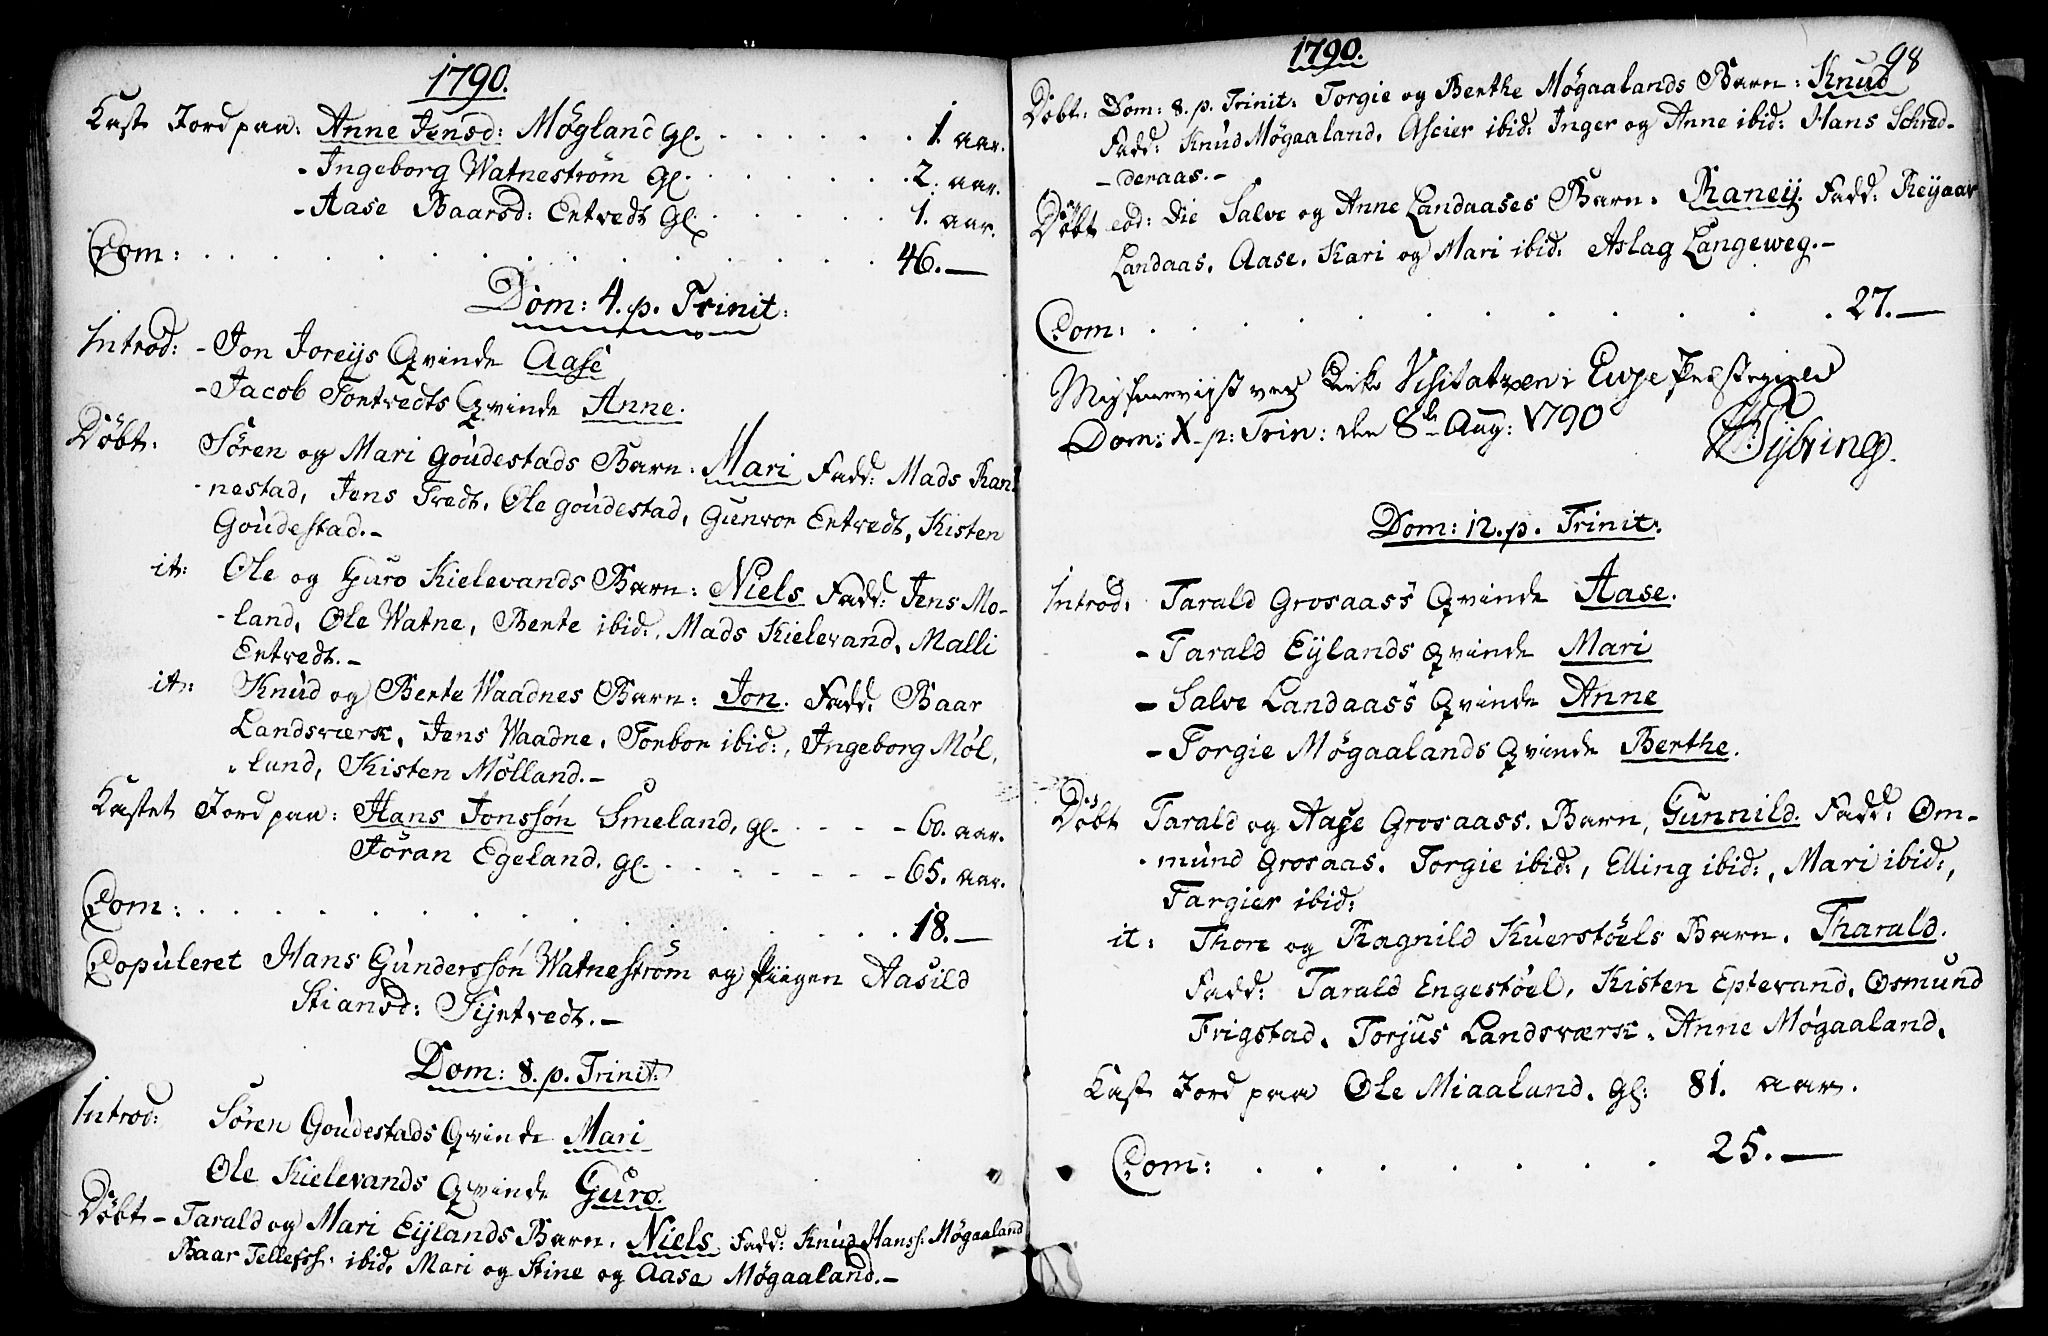 1790.
Kast Jord paa: Anne Jensd: Møgland gl. . . . . . . 1. aar.
- Ingeborg Watneström gl. . . . . . . . 2. aar.
- Aase Baarsd: Ertvedt gl. . . . . . . 1. aar.
Com: . . . . . . . . . . . . . 46.—
Dom: 4. p. Trinit:
Introd: - Jon Joreijs Qvinde Aase
- Jacob Tortvedts Qvinde Anne.
Döbt: Sören og Mari Goudestads Barn: Mari Fadd: Mads Ran-
-nestad, Jens Tredt, Ole Goudestad, Gunvor Ertvedt, Kisten
Goudestad.-
it: Ole og Guro Kielevands Barn: Niels Fadd: Jens Mo-
-land, Ole Watne, Berte ibid:, Mads Kielevand, Malli
Ertvedt.-
it: Knud og Berte Waadnes Barn: Jon. Fadd: Baar
Landsværk, Jens Waadne, Torbor ibid:, Ingeborg Möl-
-lund, Kisten Mölland.-
Kastet Jord paa: Hans Jonssön Smeland, gl. - - - - 60. aar.
Jöran Egeland, gl. . . . . . . - 65. aar.
Com: . . . . . . . . . . . . 18.—
Copuleret Hans Gunderssön Watneström og Piigen Aasild
Stiansd: Sijrtvedt.-
Dom: 8. p. Trinit:
Introd: Sören Goudestads Qvinde Mari
Ole Kielevands Qvinde Guro.
Döbt - Tarald og Mari Eijlands Barn, Niels Fadd: Knud Hanss: Møgaaland
Baar Tellefss: ibid, Mari og Stine og Aase Møgaaland.-
1790.
98
Döbt: Dom: 8. p. Trinit: Torgie og Berthe Møgaalands Barn: Knud
Fadd: Knud Møgaaland, Aseier ibid: Inger og Anne ibid: Hans Schred-
-deraas.-
Döbt eod: die Salve og Anne Landaases Barn. Raneij. Fadd: Reijaar
Landaas, Aase, Kari og Mari ibid. Aslag Langeweg.-
Com: . . . . . . . . . . 27.—
Visitatzen i Evje Præstegield
Dom: X. p: Trin: den 8de Aug: 1790
Dom: 12. p. Trinit:
Introd: Tarald Grosaass Qvinde Aase.
- Tarald Eijlands Qvinde Mari
- Salve Landaass Qvinde Anne
- Torgie Møgaalands Qvinde Berthe.
Döbt Tarald og Aase Grosaass. Barn, Gunnild. Fadd: Om-
-mund Grosaas. Torgie ibid:, Elling ibid:, Mari ibid:,
Targier ibid:
it: Thore og Ragnild Kuerstöels Barn. Tharald.
Fadd: Tarald Engestöel, Kisten Eptevand, Osmund
Frigstad, Torjus Landsværk, Anne Møgaaland.
Kast Jord paa Ole Miaalund. gl: 81. aar.
Com: . . . . . . . 25.—